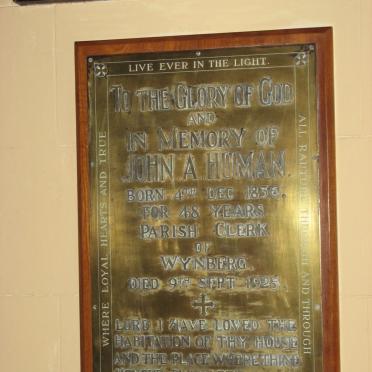 LIVE EVER IN THE LIGHT.
TO THE GLORY OF GOD
AND
IN MEMORY OF
JOHN A HUMAN.
BORN 4TH DEC 1856.
FOR 48 YEARS
PARISH CLERK
OF
WYNBERG
DIED 9TH SEPT 1925.
LORD I HAVE LOVED THE
HABITATION OF THY HOUSE
AND THE PLACE WHERE THINE
WHERE LOYAL HEARTS AND TRUE
ALL RAPTURE THROUGH AND THROUGH